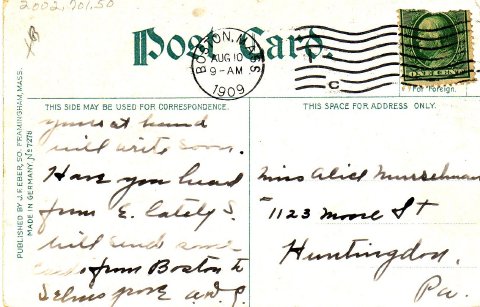 2002.701.50
Post Card.
BOSTON, MASS.
AUG 10
9-AM
1909
C
ONE CENT
For Foreign.
THIS SIDE MAY BE USED FOR CORRESPONDENCE.
THIS SPACE FOR ADDRESS ONLY.
PUBLISHED BY J.F. EBER, SO. FRAMINGHAM, MASS.
MADE IN GERMANY No 7278
yours at hand
will write soon.
Have you head
from E. lately S.
will send some
from Boston to
Miss Alice Musselman
1123 Moore St
Huntingdon,
Pa.